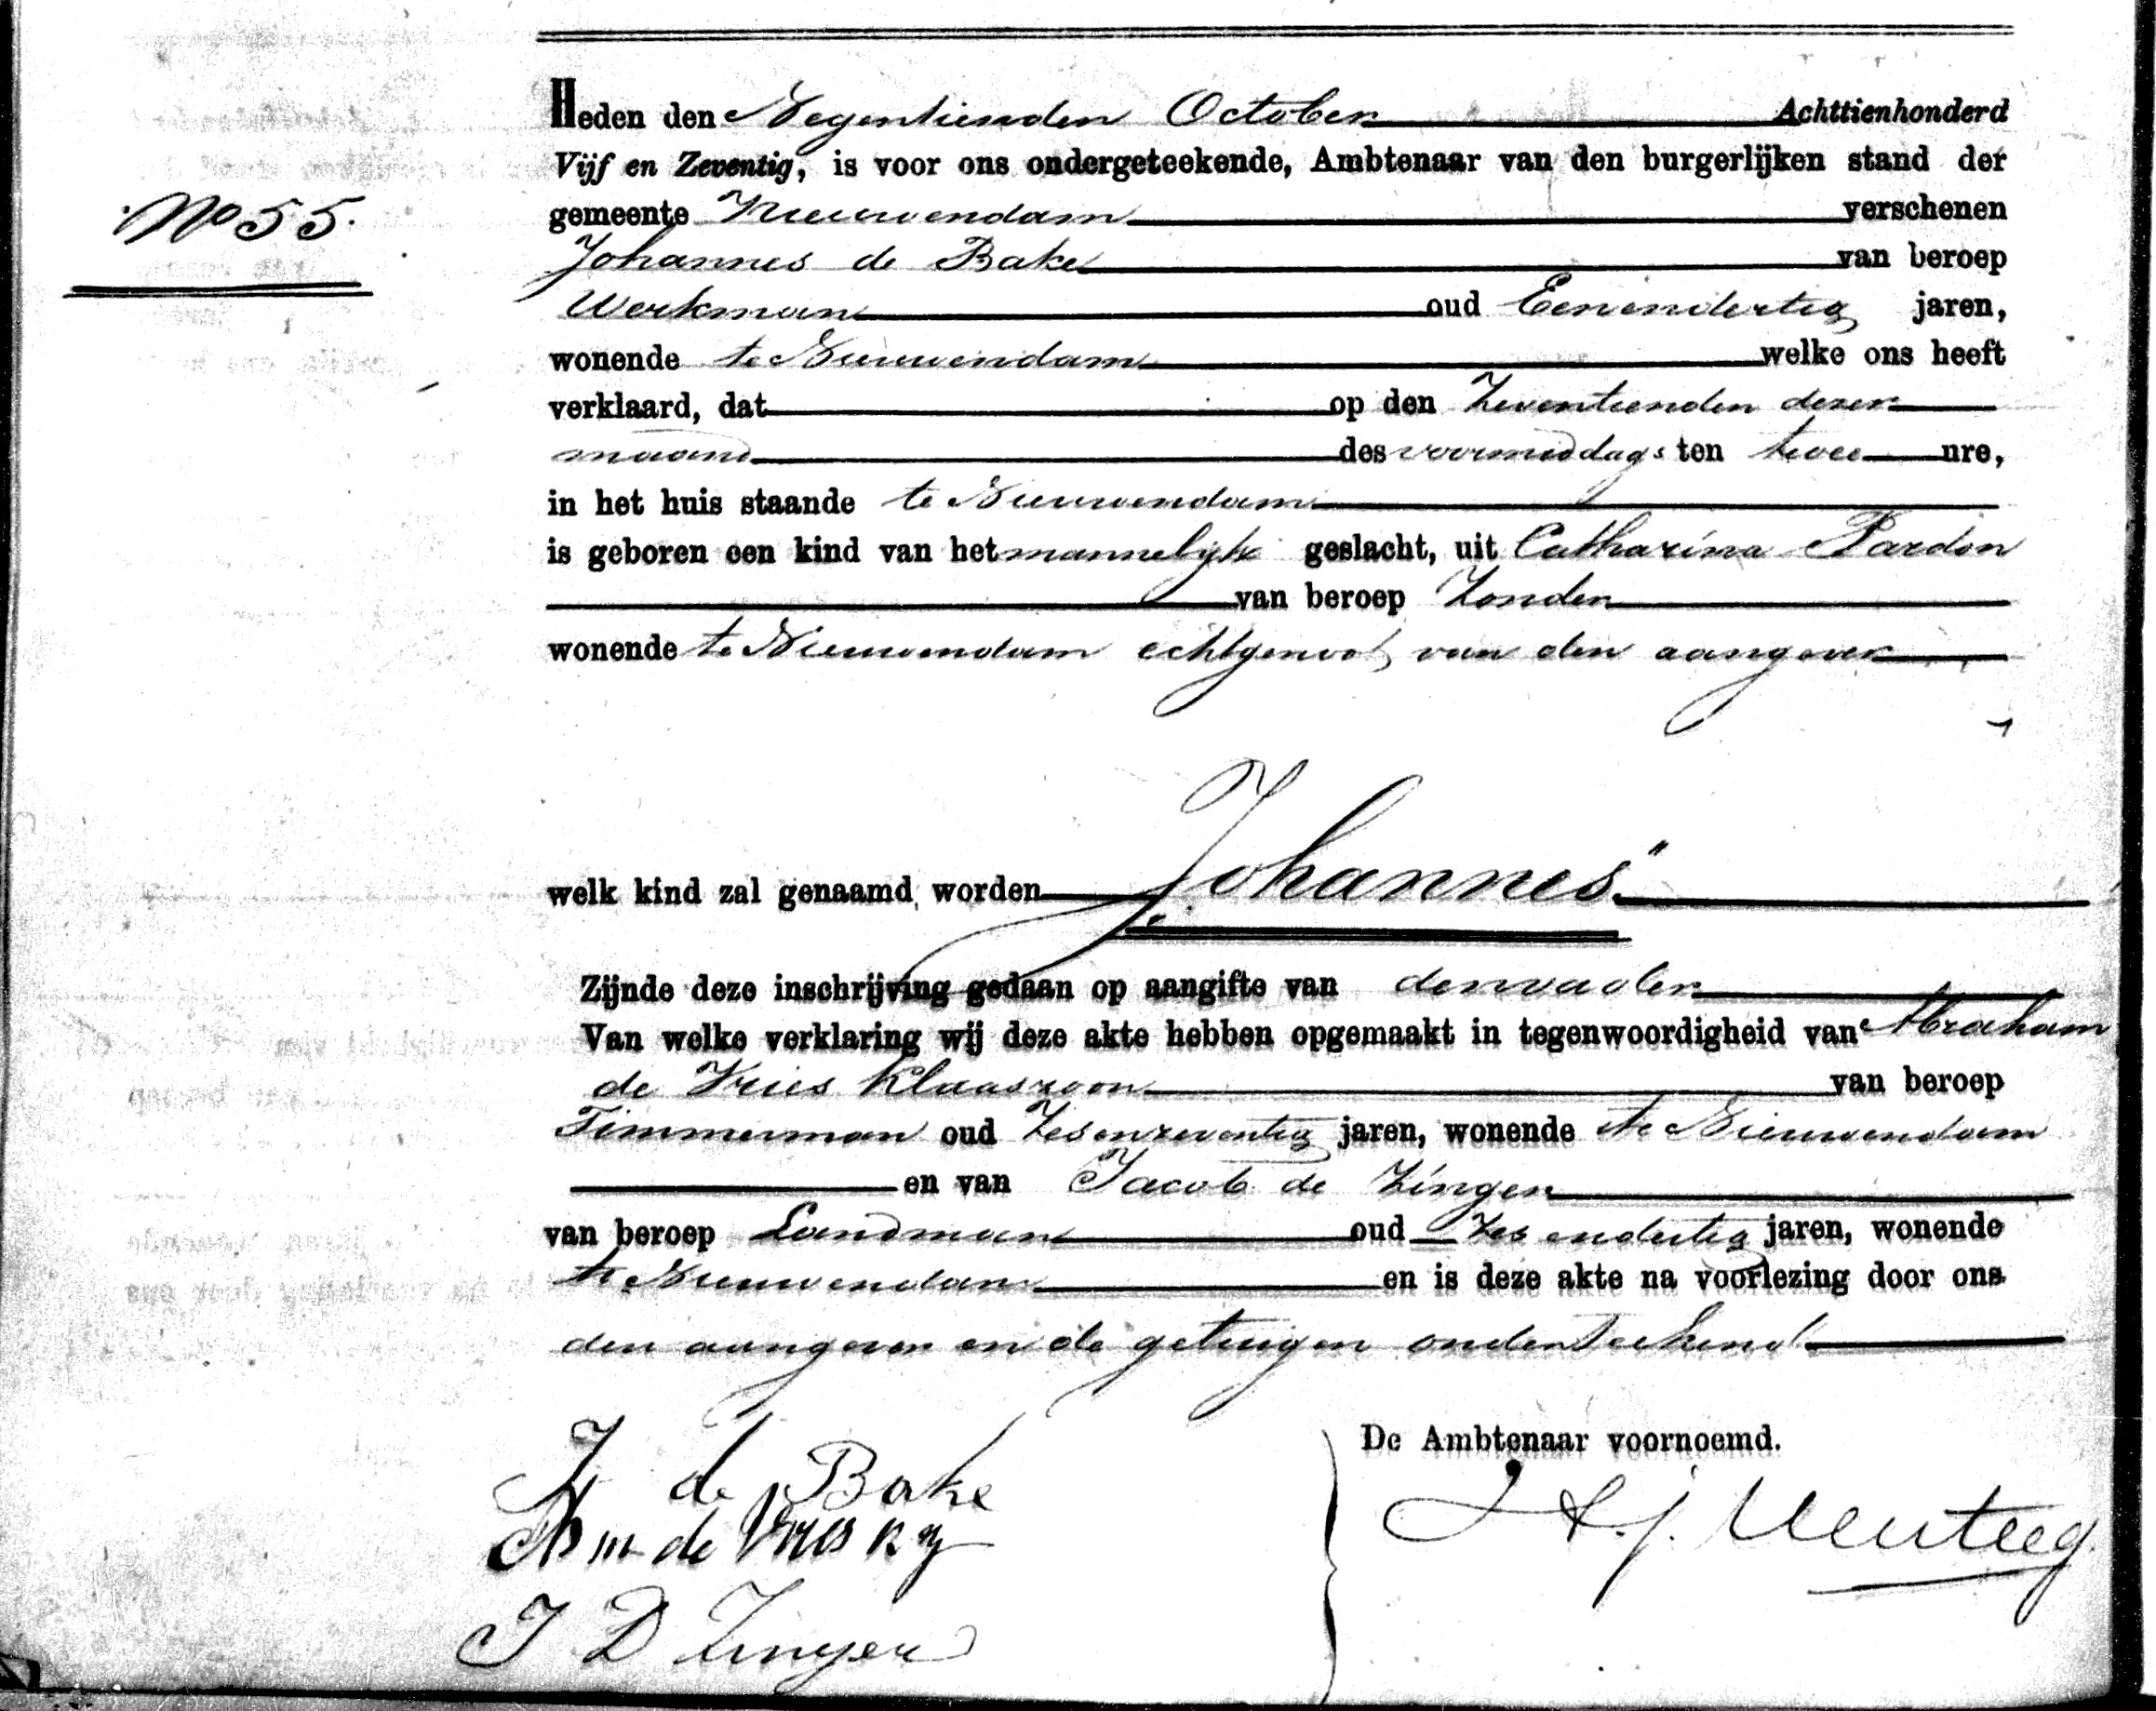 Heden den Negentienden October Achttienhonderd
Vijf en Zeventig, is voor ons ondergeteekende, Ambtenaar van den burgerlijken stand der
No 55.
gemeente Nieuwendam verschenen
Johannes de Bake van beroep
Werkman oud Eenendertig jaren,
wonende te Nieuwendam welke ons heeft
verklaard, dat op den Zeventienden dezer
maand des voormiddags ten twee ure,
in het huis staande te Nieuwendam
is geboren een kind van het mannelijk geslacht, uit Catharina Pardon
van beroep Zonder
wonende te Nieuwendam echtgenoot van den aangever
welk kind zal genaamd worden „Johannes"
Zijnde deze inschrijving gedaan op aangifte van den vader
Van welke verklaring wij deze akte hebben opgemaakt in tegenwoordigheid van Abraham
de Vries Klaaszoon van beroep
Timmerman oud Zesenzeventig jaren, wonende te Nieuwendam
en van Jacob de Zinger
van beroep Landman oud Zes endertig jaren, wonende
te Nieuwendam en is deze akte na voorlezing door ons
den aangever en de getuigen onderteekend
De Ambtenaar voornoemd.
J de Bake
Abm de Vries Kz
J D Zinger